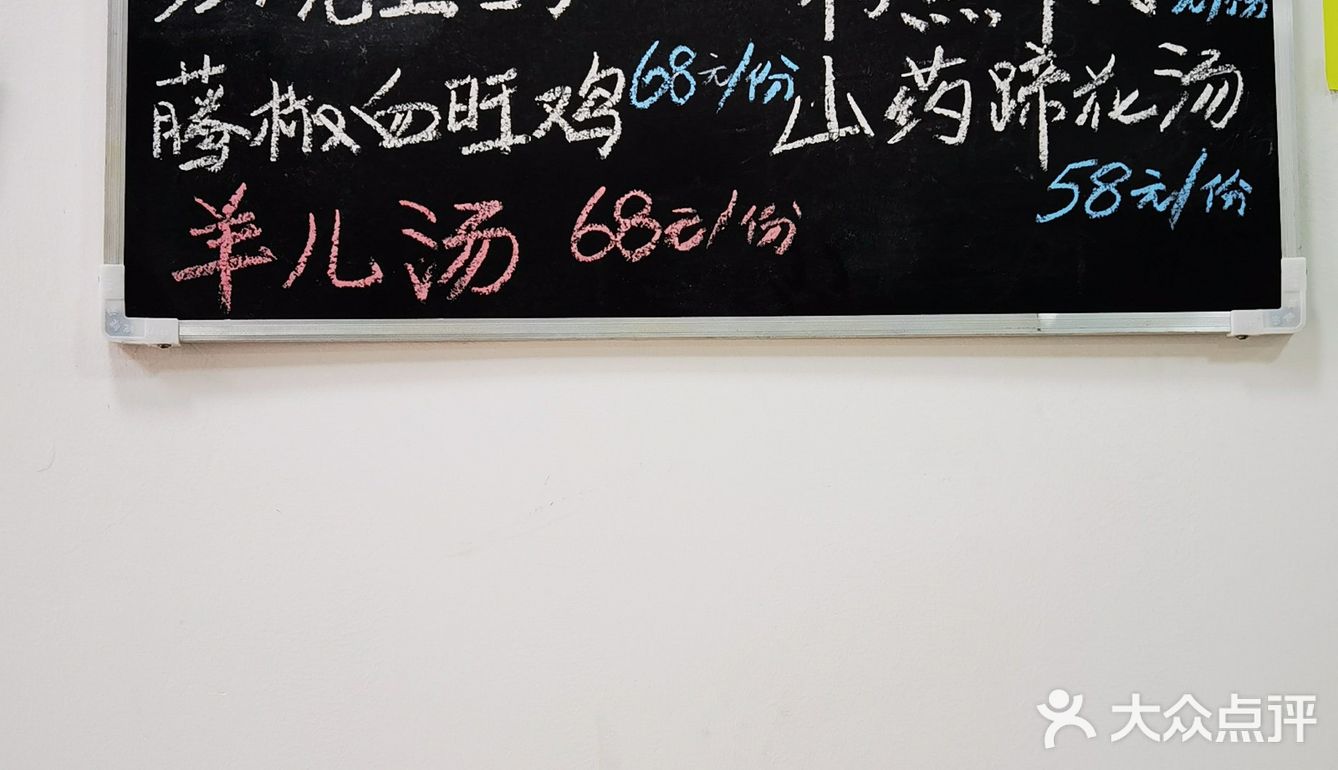 元/份
藤椒白旺鸡 68元/份 山药蹄花汤
58元/份
羊儿汤 68元/份
大众点评